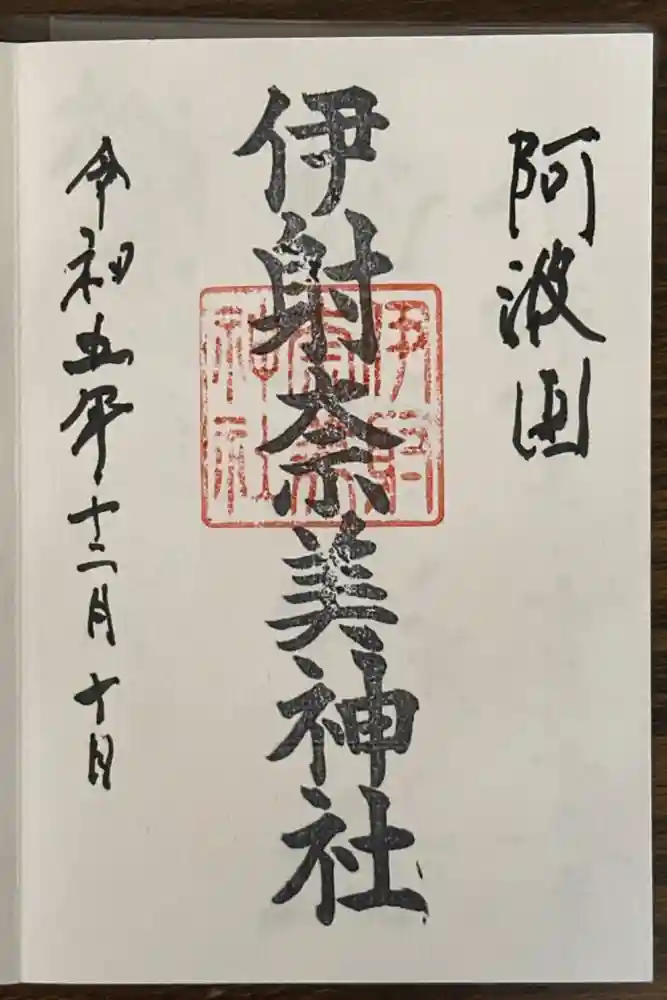 阿波国
伊射奈美神社
伊射
奈美
神社
令和五年十二月十日